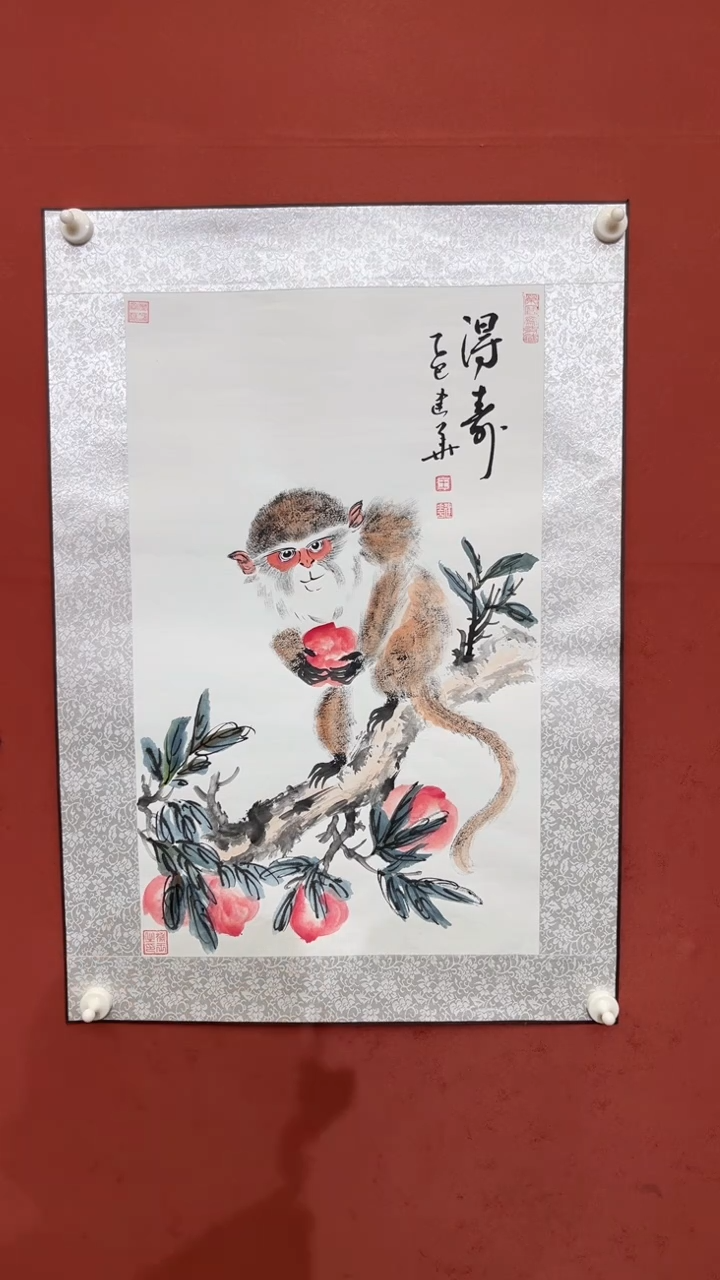 得寿
乙巳建华